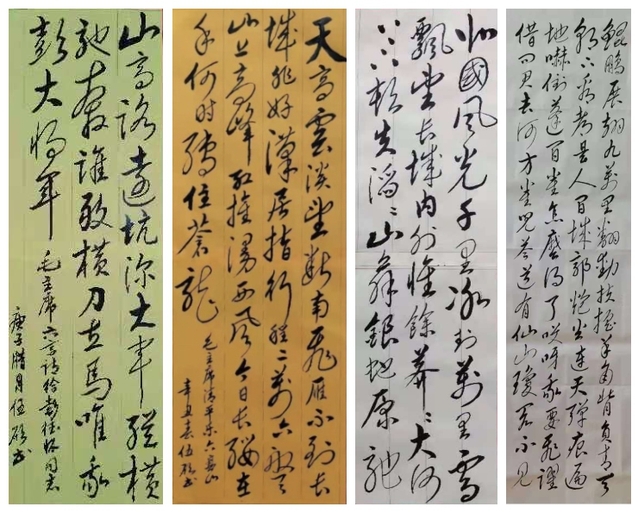 山高路遠坑深大軍縱橫
馳奔誰敢横刀立馬唯我
彭大将军 毛主席六言诗给彭德怀同志
庚子腊月伍硕书
天高雲淡望斷南飛雁不到长
城非好漢屈指行程二萬六盤
山上高峰红旗漫卷西风今日长缨在
手何时縛住蒼龙 毛主席清平乐六盘山
辛丑春伍硕书
北國风光千里冰封萬里雪
飄望长城内外惟餘莽々大河
上下頓失滔々山舞銀蛇原馳
鲲鹏展翅九萬里翻動扶摇羊角背负青天
朝下看都是人間城郭炮火連天彈痕遍
地嚇倒蓬间雀怎麽得了哎呀我要飛躍
借问君去何方雀兒答道有仙山瓊阁不見